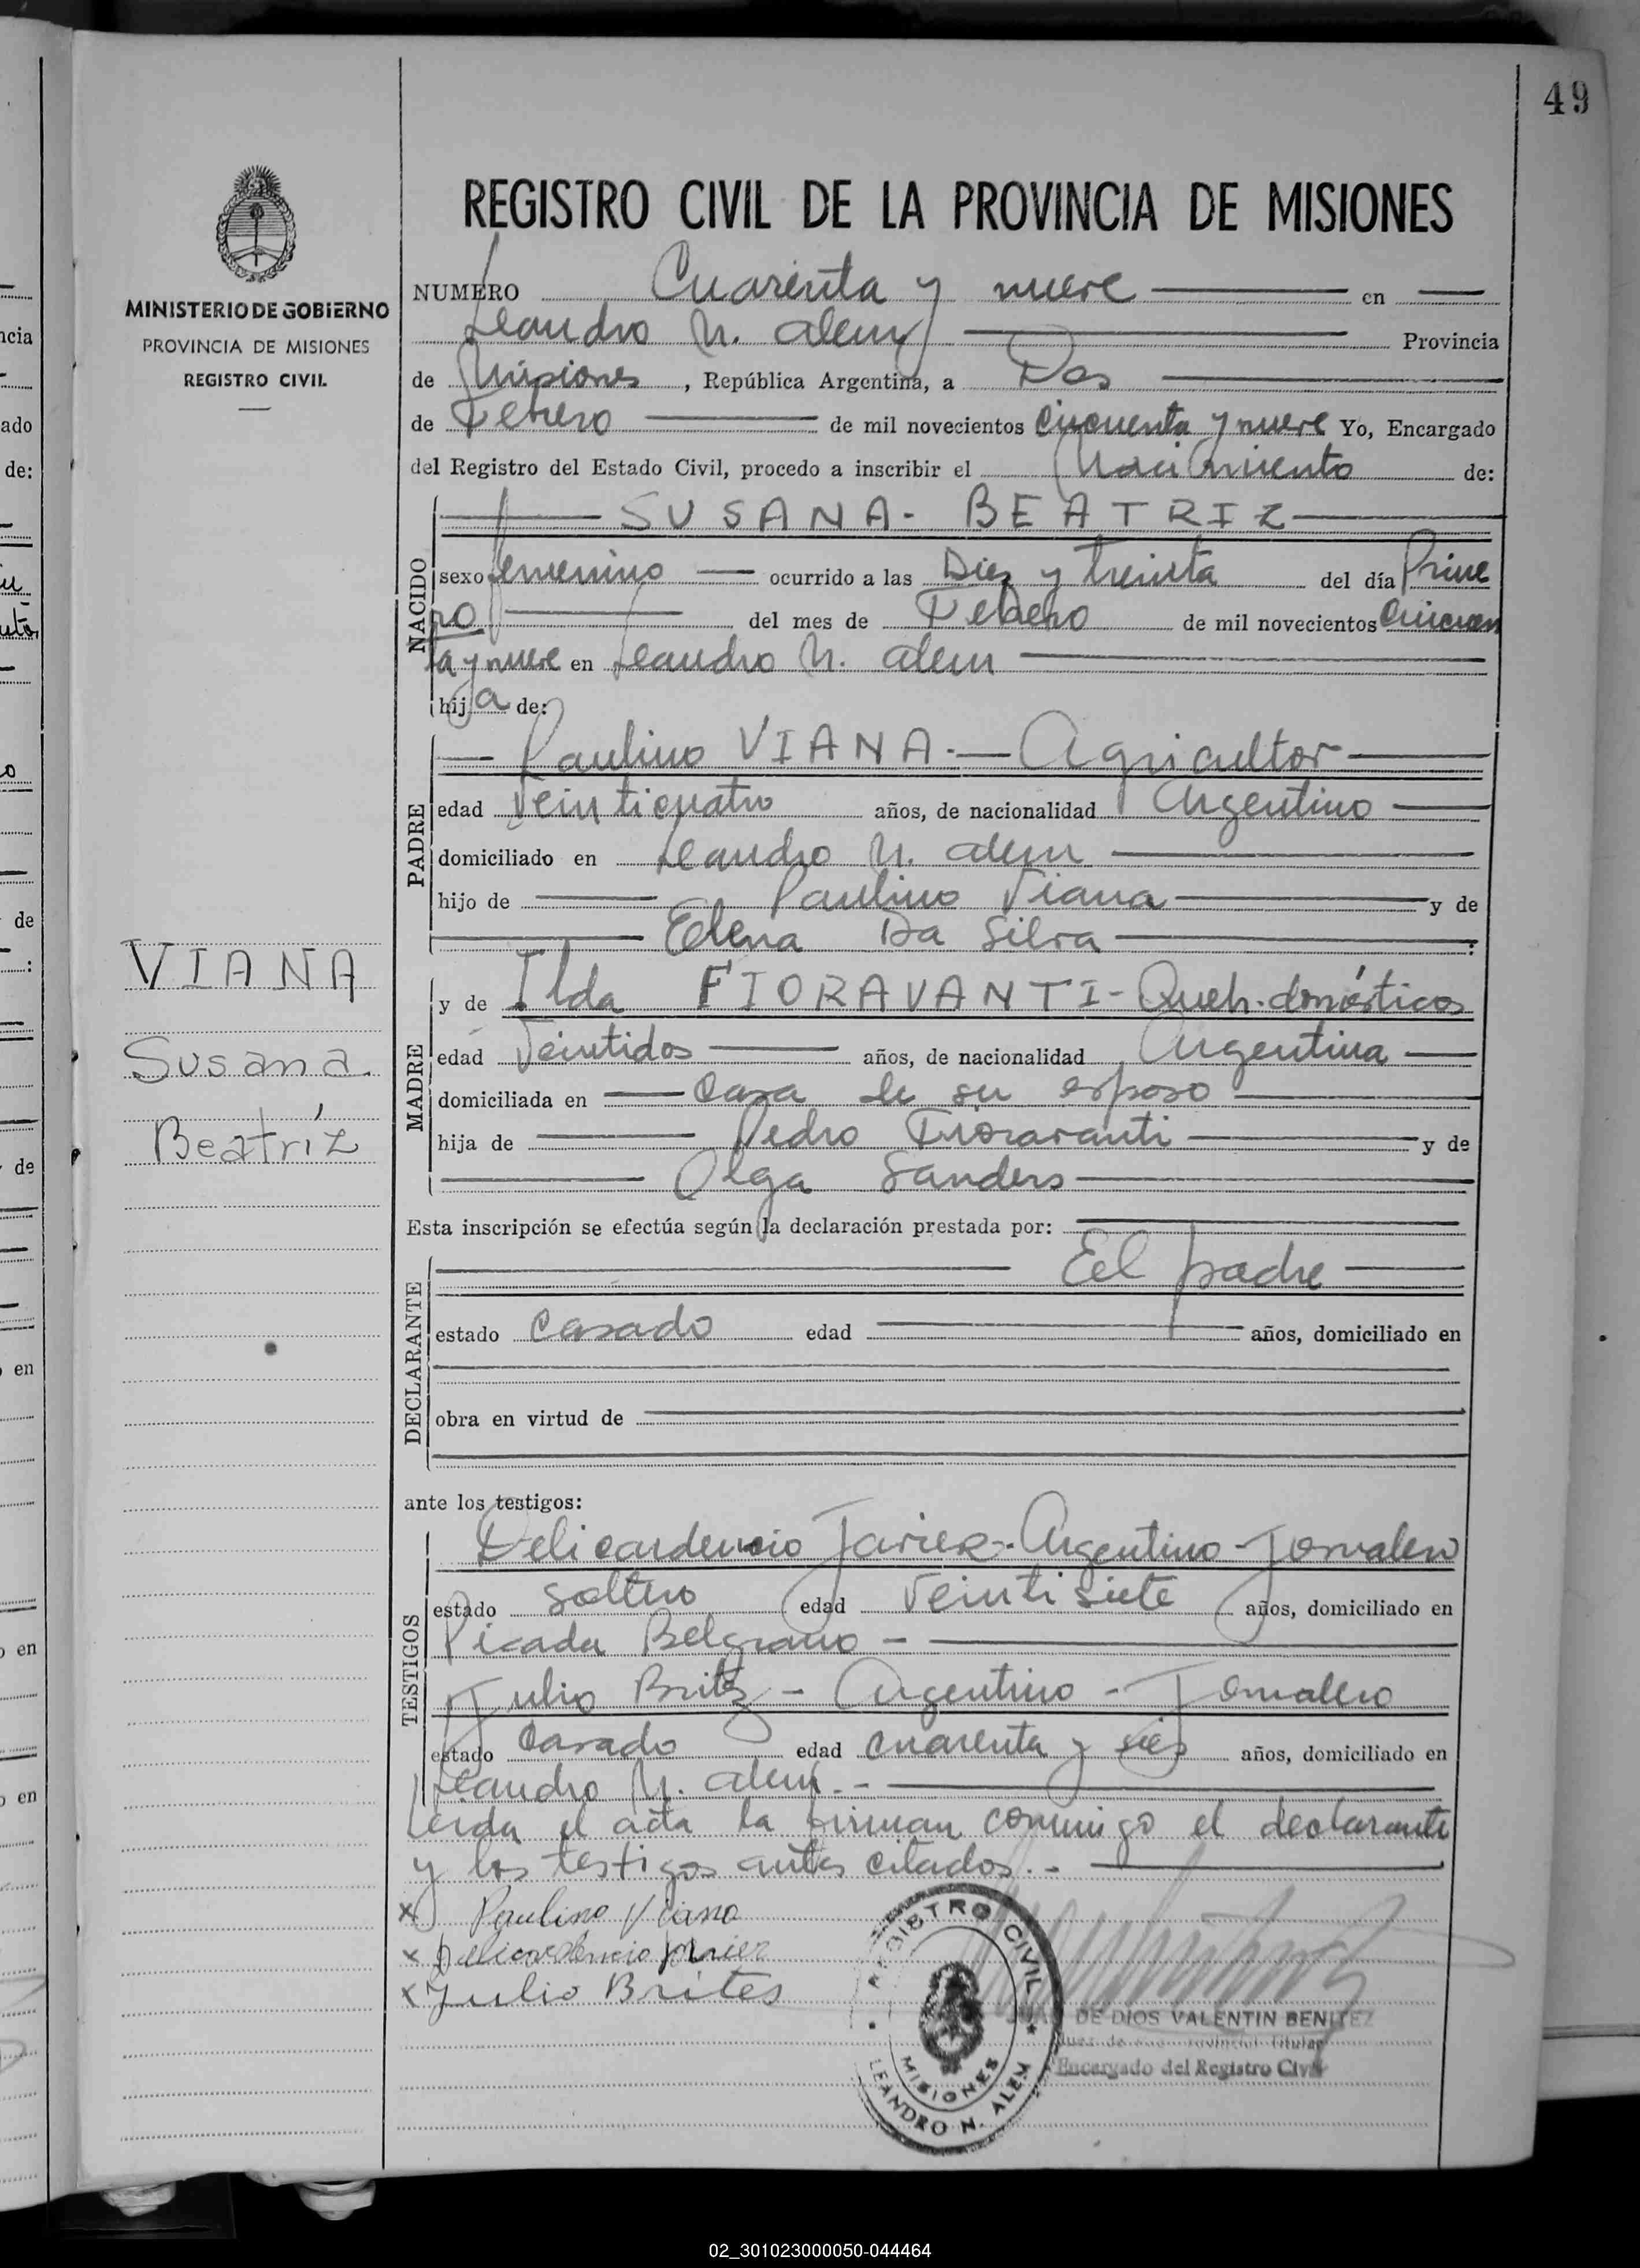 49
REGISTRO CIVIL DE LA PROVINCIA DE MISIONES
MINISTERIO DE GOBIERNO
PROVINCIA DE MISIONES
REGISTRO CIVIL
NUMERO Cuarenta y nueve en
Leandro N. Alem Provincia
de Misiones, República Argentina, a Dos
de Febrero de mil novecientos cincuenta y nueve Yo, Encargado
del Registro del Estado Civil, procedo a inscribir el Nacimiento de:
NACIDO
SUSANA- BEATRIZ
sexo femenino ocurrido a las Diez y treinta del día Prime
ro del mes de Febrero de mil novecientos cincuen
ta y nueve en Leandro N. Alem
hija de:
PADRE
Paulino VIANA.- Agricultor
edad Veinticuatro años, de nacionalidad Argentino
domiciliado en Leandro N. Alem
hijo de Paulino Viana y de
Elena Da Silva :
VIANA
Susana
Beatríz
MADRE
y de Ilda FIORAVANTI- Queh. domésticos
edad Veintidos años, de nacionalidad Argentina
domiciliada en Casa de su esposo
hija de Pedro Fioravanti y de
Olga Sanders
Esta inscripción se efectúa según la declaración prestada por:
DECLARANTE
El padre
estado Casado edad años, domiciliado en
obra en virtud de
ante los testigos:
TESTIGOS
Delicardencio Javier-Argentino-Jornalero
estado soltero edad Veintisiete años, domiciliado en
Picada Belgrano -
Julio Britz - Argentino - Jornalero
estado Casado edad cuarenta y seis años, domiciliado en
Leandro N. Alem.-
Leida el acta la firman conmigo el declarante
y los testigos antes citados.-
x Paulino Viana
x Delicardencio Javier
x Julio Brites
REGISTRO CIVIL
MISIONES
LEANDRO N. ALEM
JUAN DE DIOS VALENTIN BENITEZ
Juez de Titular
Encargado del Registro Civil
02_301023000050-044464